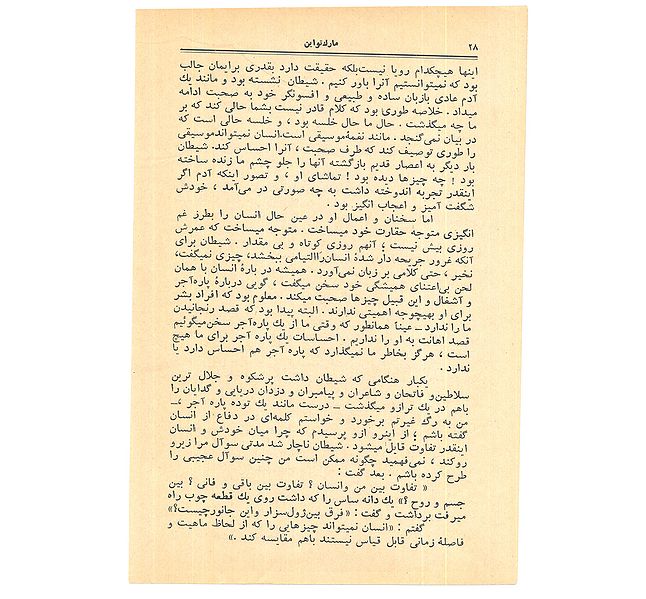 ۲۸
مارك تواین
اینها هیچکدام رویا نیست‌بلکه حقیقت دارد بقدری برایمان جالب
بود که نمیتوانستیم آنرا باور کنیم . شیطان نشسته بود و مانند یك
آدم عادی بازبان ساده و طبیعی و افسونگر خود به صحبت ادامه
میداد . خلاصه طوری بود که کلام قادر نیست بشما حالی کند که بر
ما چه میگذشت . حال ما حال خلسه بود ، و خلسه حالی است که
در بیان نمی‌گنجد . مانند نغمهٔ‌موسیقی است.انسان نمیتواندموسیقی
را طوری توصیف کند که طرف صحبت ، آنرا احساس کند. شیطان
بار دیگر به اعصار قدیم بازگشته آنها را جلو چشم ما زنده ساخته
بود ! چه چیزها دیده بود ! تماشای او ، و تصور اینکه آدم اگر
اینقدر تجربه اندوخته داشت به چه صورتی در می‌آمد ، خودش
شگفت آمیز و اعجاب انگیز بود .
اما سخنان و اعمال او در عین حال انسان را بطرز غم
انگیزی متوجه حقارت خود میساخت . متوجه میساخت که عمرش
روزی بیش نیست ؛ آنهم روزی کوتاه و بی مقدار . شیطان برای
آنکه غرور جریحه دار شدهٔ انسان‌راالتیامی ببخشد، چیزی نمیگفت،
نخیر ، حتی کلامی بر زبان نمی‌آورد . همیشه در بارهٔ انسان با همان
لحن بی‌اعتنای همیشگی خود سخن میگفت ، گویی دربارهٔ پاره‌آجر
و آشغال و این قبیل چیزها صحبت میکند . معلوم بود که افراد بشر
برای او بهیچوجه اهمیتی ندارند . البته پیدا بود که قصد رنجانیدن
ما را ندارد ــ عینا همانطور که وقتی ما از یك پاره‌آجر سخن‌میگوئیم
قصد اهانت به او را نداریم . احساسات یك پاره آجر برای ما هیچ
است ، هرگز بخاطر ما نمیگذارد که پاره آجر هم احساس دارد یا
ندارد .
یکبار هنگامی که شیطان داشت پرشکوه و جلال ترین
سلاطین‌و فاتحان و شاعران و پیامبران و دزدان دریایی و گدایان را
باهم در یك ترازو میگذشت ــ درست مانند یك توده پاره آجر ،ــ
من به رگ غیرتم برخورد و خواستم کلمه‌ای در دفاع از انسان
گفته باشم ؛ از اینرو ازو پرسیدم که چرا میان خودش و انسان
اینقدر تفاوت قابل میشود . شیطان ناچار شد مدتی سوآل مرا زیرو
روکند ، نمی‌فهمید چگونه ممکن است من چنین سوآل عجیبی را
طرح کرده باشم . بعد گفت :
« تفاوت بین من وانسان ؟ تفاوت بین باقی و فانی ؟ بین
جسم و روح ؟» یك دانه ساس را که داشت روی یك قطعه چوب راه
میرفت برداشت و گفت : «فرق بین‌ژول‌سزار واین جانورچیست؟»
گفتم : «انسان نمیتواند چیزهایی را که از لحاظ ماهیت و
فاصلهٔ زمانی قابل قیاس نیستند باهم مقایسه کند .»